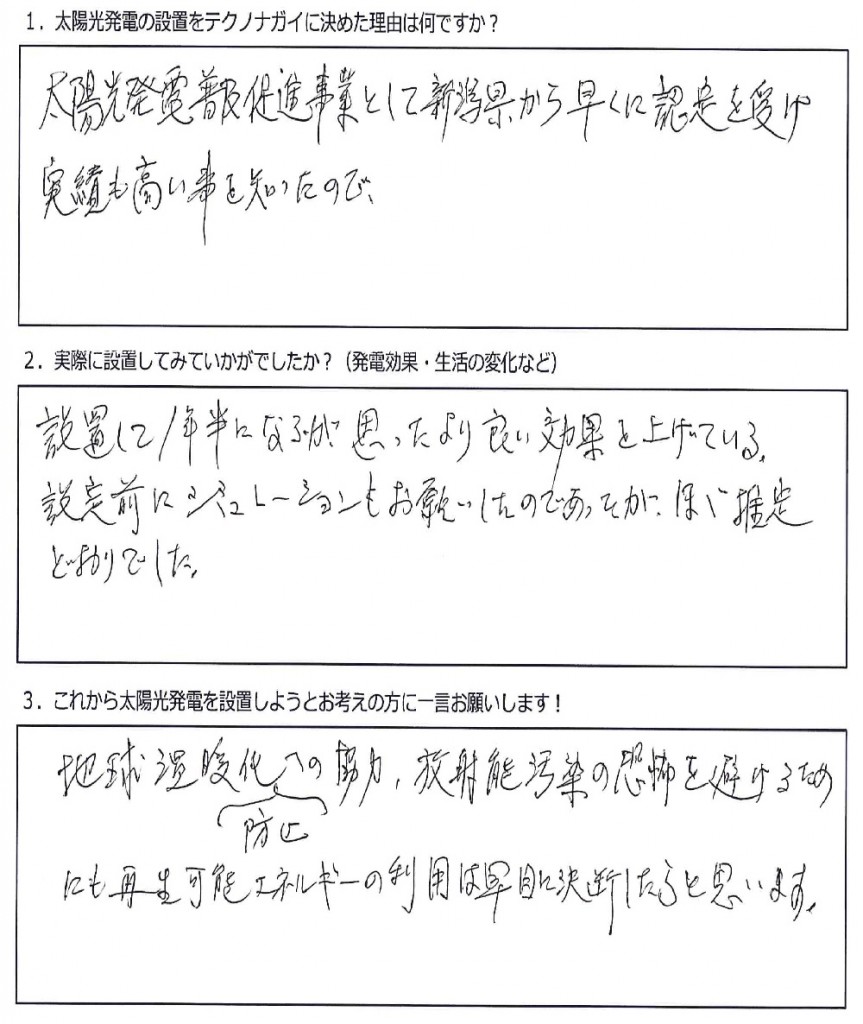 1. 太陽光発電の設置をテクノナガイに決めた理由は何ですか？
太陽光発電普及促進事業として新潟県から早くに認定を受け
実績も高い事を知ったので、
2. 実際に設置してみていかがでしたか？（発電効果・生活の変化など）
設置して1年半になるが思ったより良い効果を上げている。
設定前にシミュレーションもお願いしたのであったが、ほぼ推定
どおりでした。
3. これから太陽光発電を設置しようとお考えの方に一言お願いします！
地球温暖化への協力，放射能汚染の恐怖を避けるため
防止
にも再生可能エネルギーの利用は早目に決断したらと思います。